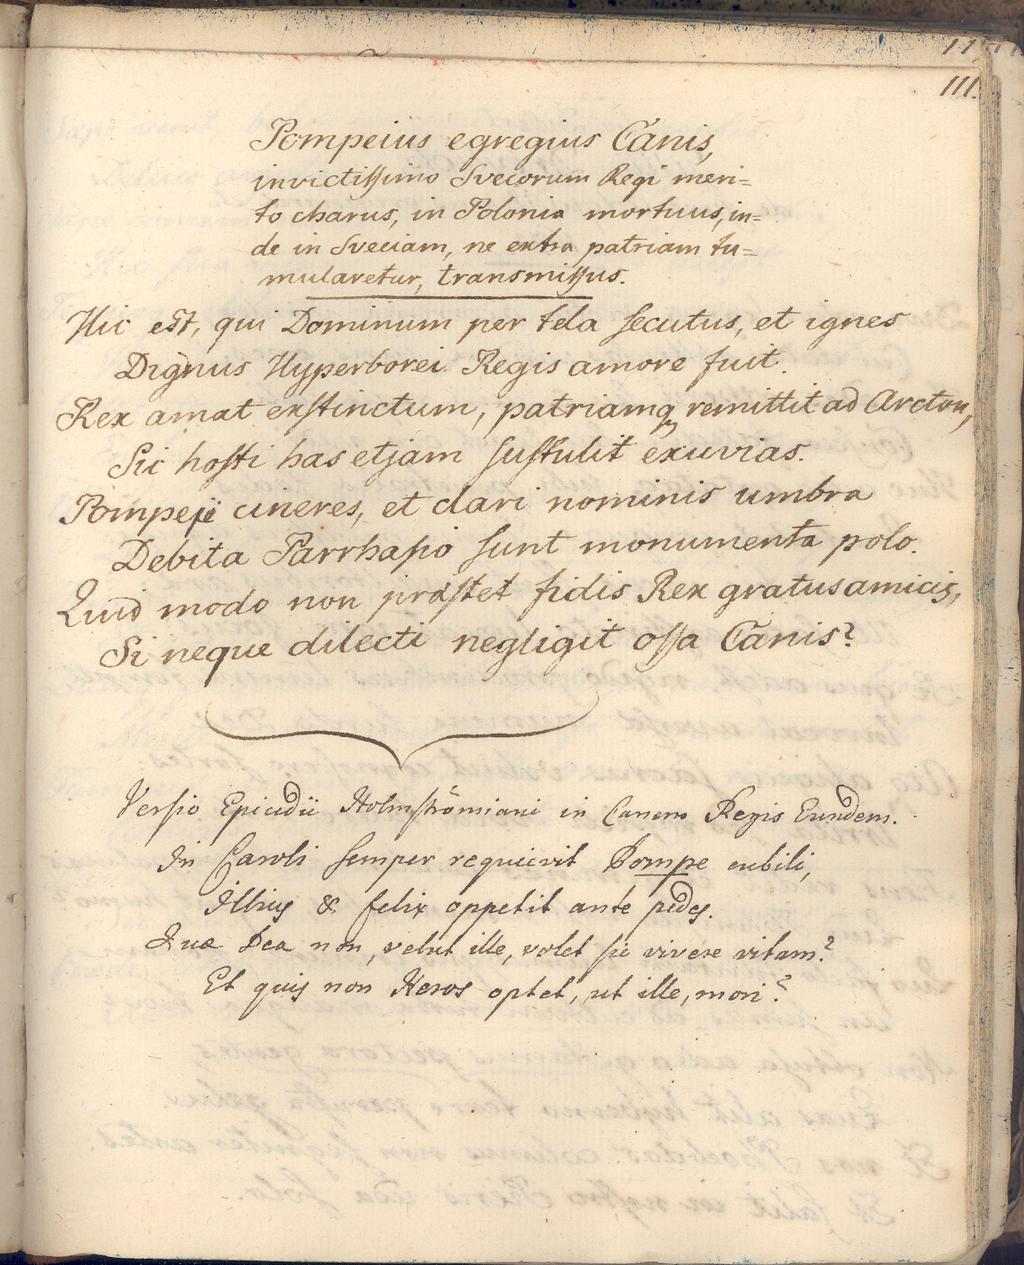 111.
Pompeius egregius Canis,
invictissimo Svecorum Regi meri=
to charus, in Polonia mortuus, in=
de in Sveciam, ne extra patriam tu=
mularetur, transmissus.
Hic est, qui Dominum per tela secutus, et ignes
Dignus Hyperborei Regis amore fuit.
Rex amat exstinctum, patriamq remittit ad Arcton,
Sic hosti has etjam sustulit exuvias.
Pompeji cineres, et clari nominis umbra
Debita Parrhasio sunt monumenta polo.
Quid modo non præstet fidis Rex gratus amicis,
Si neque dilecti negligit ossa Canis?
Versio Epicidii Holmströmiani in Canem Regis Eundem.
In Caroli semper requievit Pompe cubili,
Illius & felix oppetit ante pedes.
Quæ Dea non, velut ille, volet sic vivere vitam?
Et quis non Heros optet, ut ille, mori?